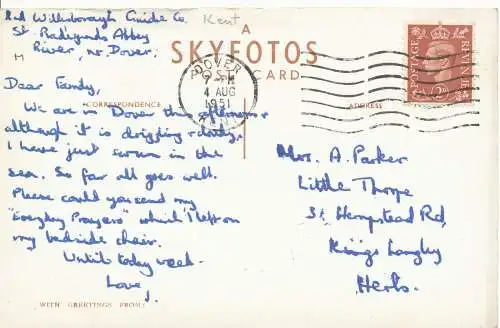 2nd Willesborough Guide Co.
St. Radigunds Abbey
River, nr. Dover.
Kent
A
SKYFOTOS
POST CARD
DOVER
4 AUG
1951
POSTAGE
REVENUE
CORRESPONDENCE
ADDRESS
Dear Family,
We are in Dover this afternoon
although it is drizzling slightly.
I have just swum in the
sea. So far all goes well.
Please could you send my
"Everyday Prayers" which I left on
my bedside chair.
Until today week.
Love
J.
WITH GREETINGS FROM:
Mrs. A. Parker
Little Thorpe
31, Hempstead Rd,
Kings Langley
Herts.